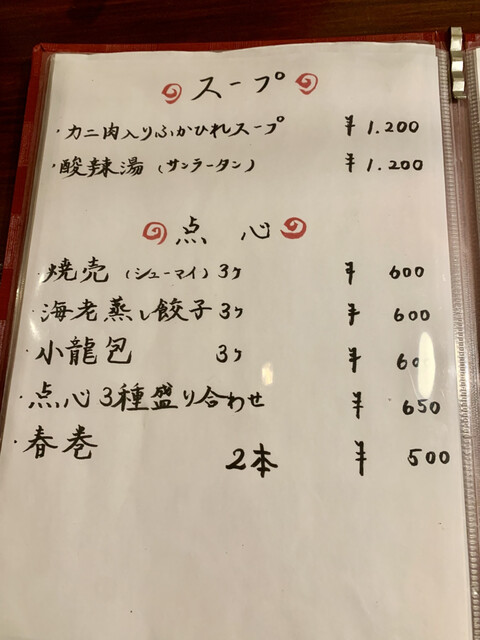 スープ
・カニ肉入りふかひれスープ ¥1.200
・酸辣湯(サンラータン) ¥1.200
点心
・焼売(シューマイ)3ヶ ¥600
・海老蒸し餃子3ヶ ¥600
・小龍包 3ヶ ¥60
・点心3種盛り合わせ ¥650
・春巻 2本 ¥500